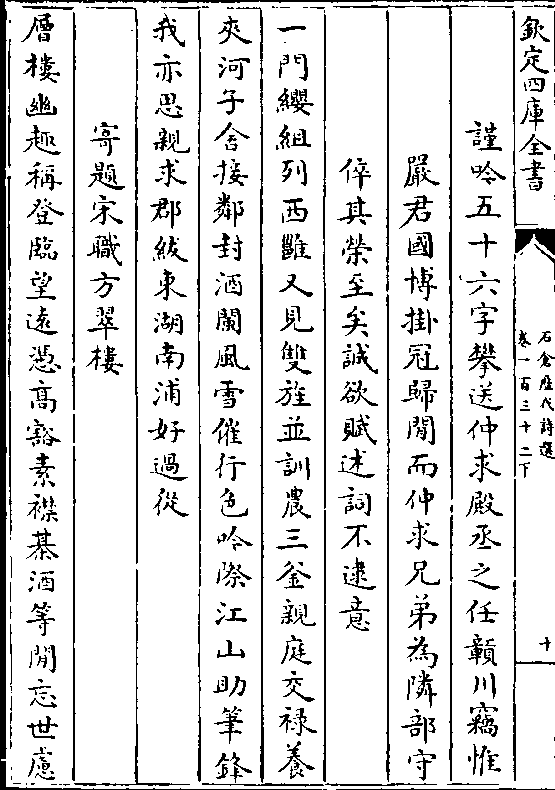 欽定四庫全書
石倉歷代詩選
卷一百三十二下
十
謹吟五十六字攀送仲求殿丞之任贛川竊惟
嚴君國博掛冠歸閒而仲求兄弟為隣部守
倅其榮至矣誠欲賦述詞不逮意
一門纓組列西雝又見雙旌並訓農三釜親庭交禄養
夾河子舍接鄰封酒闌風雪催行色吟際江山助筆鋒
我亦思親求郡紱東湖南浦好過從
寄題宋職方翠樓
層樓幽趣稱登臨望遠憑高豁素襟棊酒等閒忘世慮